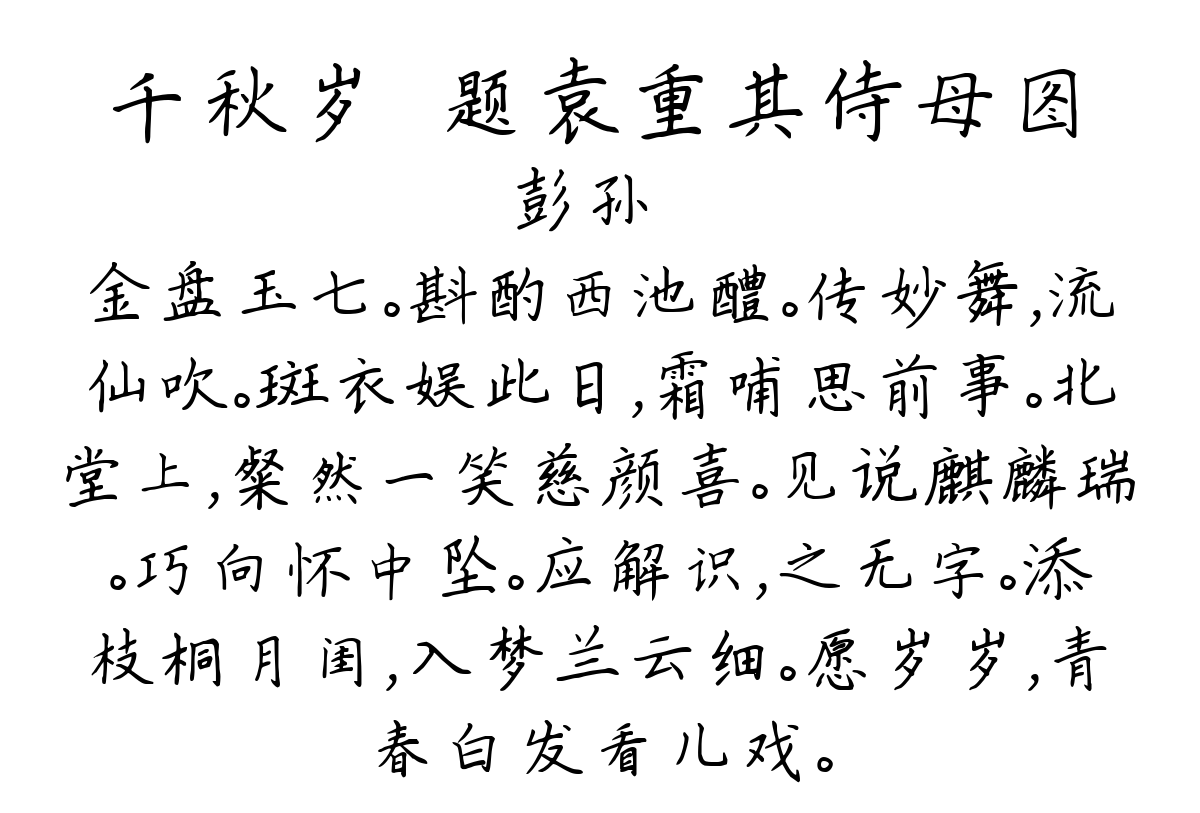 千秋岁 题袁重其侍母图
彭孙
金盘玉七。斟酌西池醴。传妙舞,流
仙吹。斑衣娱此日,霜哺思前事。北
堂上,粲然一笑慈颜喜。见说麒麟瑞
。巧向怀中坠。应解识,之无字。添
枝桐月闺,入梦兰云细。愿岁岁,青
春白发看儿戏。